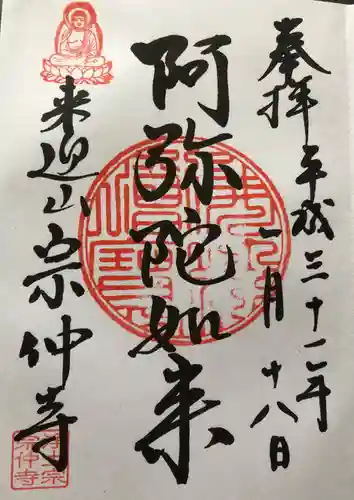 奉拝 平成三十一年
一月 十八日
阿弥陀如来
来迎山 宗仲寺
浄土宗
宗仲寺